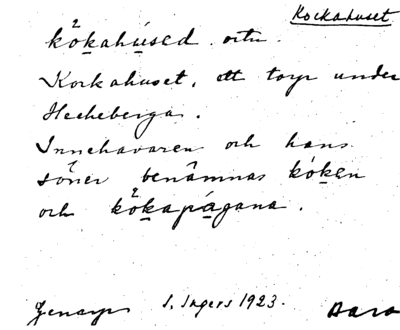 Kockahuset
kò̂kahúsed. ortn.
Kockahuset, ett torp under
Heckeberga.
Innehavaren och hans
söner benämnas kóken
och kò̂kapágana.
Genarp I. Ingers 1923. Bara